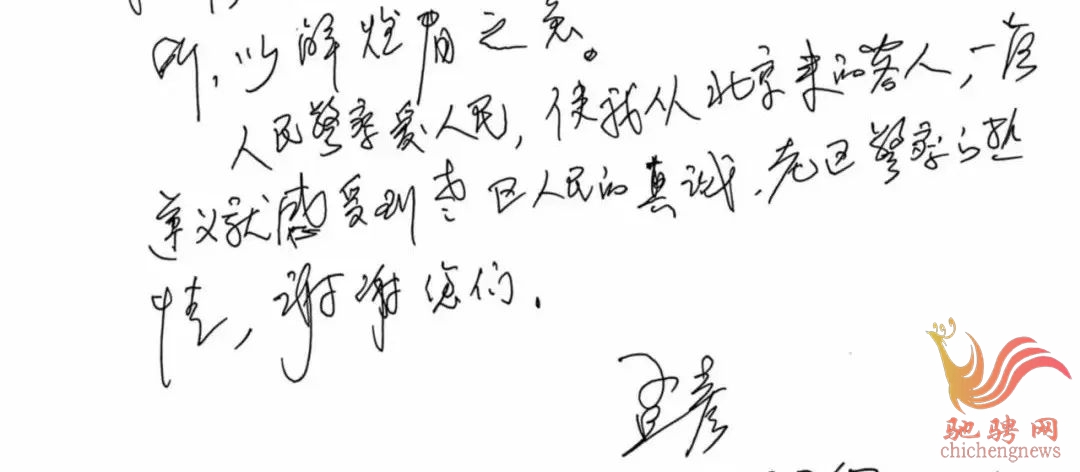 叫，以解燃眉之急。
人民警察爱人民，使我从北京来的客人，一啓
遵义就感受到老区人民的真诚、老区警察的热
情，谢谢您们.
彦
驰骋网
chichengnews